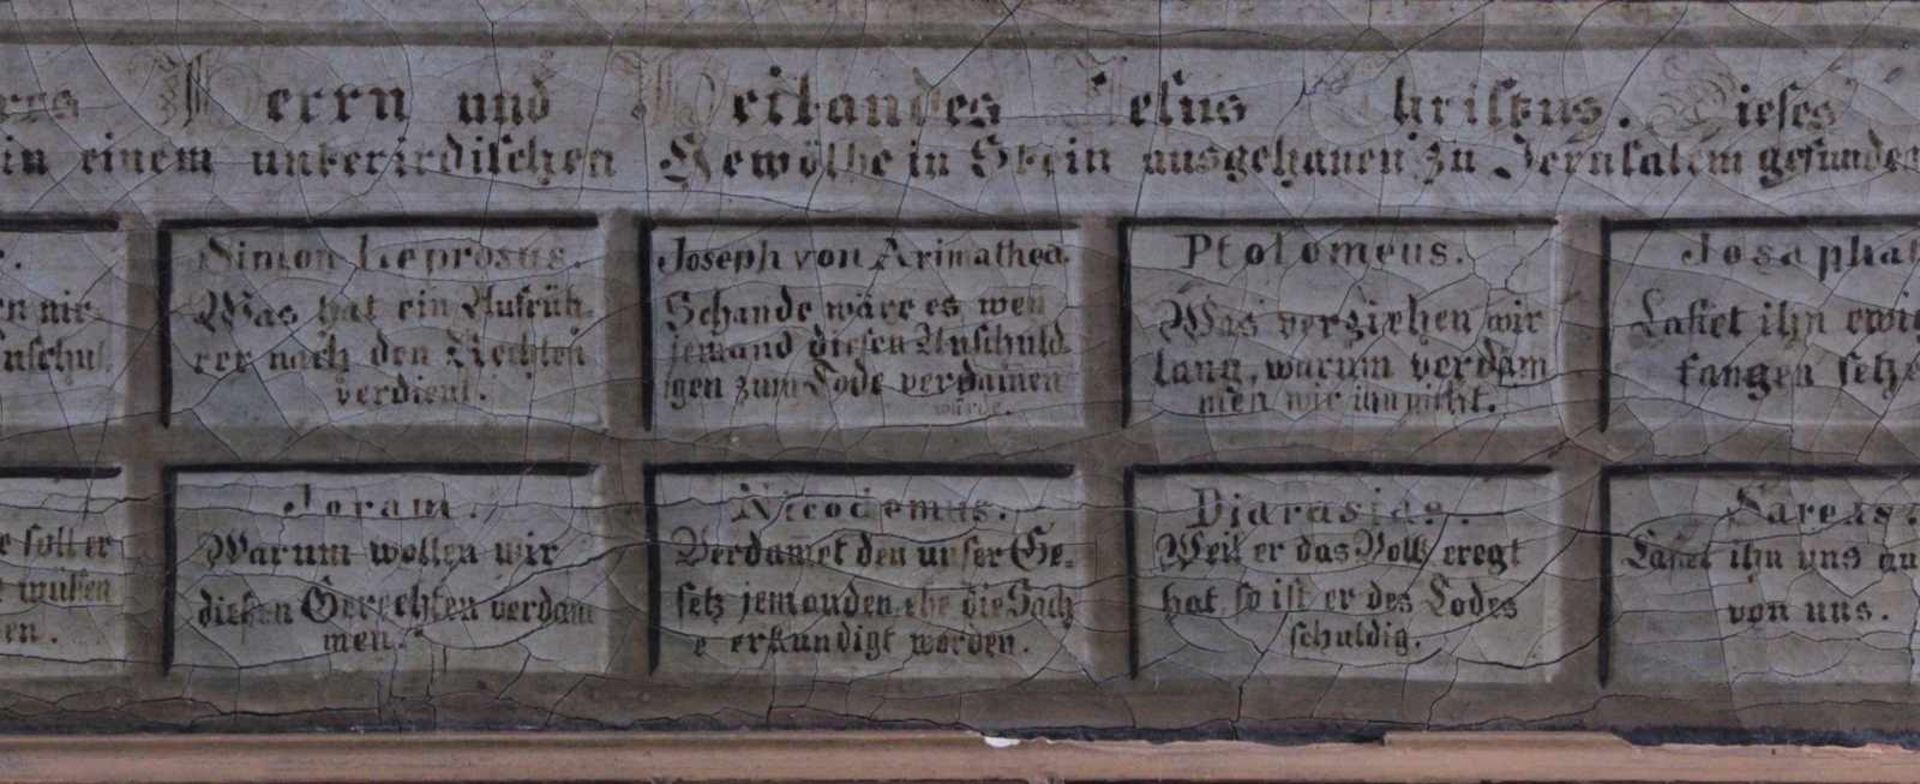 Herrn und Heilandes Jesus Christus. Dieses
in einem unterirdischen Gewölbe in Stein ausgehauen zu Jerusalem gefunden
Simon Leprosus.
Was hat ein Aufrüh-
rer nach den Rechten
verdient.
Joseph von Arimathea.
Schande wäre es wen
jemand diesen Unschuld
igen zum Tode verdamen
würde.
Ptolomeus.
Was verziehen wir
lang, warum verdam
men wir ihn nicht.
Josaphat
Lasset ihn ewig
fangen setze
soll er
müssen
en.
Joram.
Warum wollen wir
diesen Gerechten verdam
men.
Nicodemus.
Verdamet den unser Ge=
setz jemanden ehe die Sach
e erkundigt worden.
Djarasias.
Weil er das Volk eregt
hat so ist er des Todes
schuldig.
Sareas.
Lasset ihn uns au
von uns.